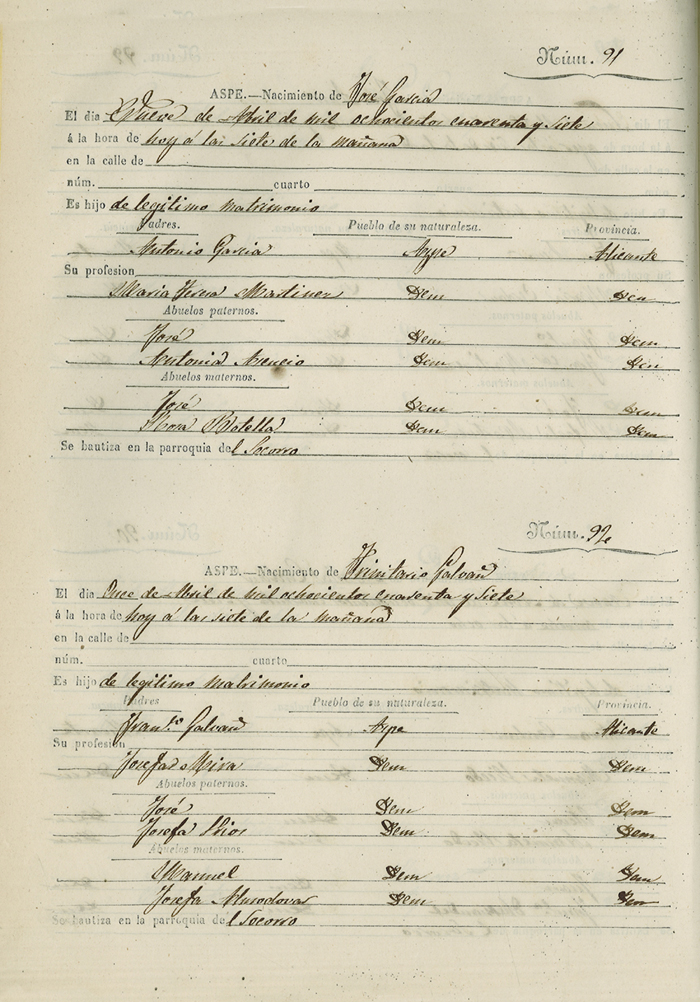 Núm. 91
ASPE.—Nacimiento de José Garcia
El dia Nueve de Abril de mil ochocientos cuarenta y siete
á la hora de hoy á las siete de la mañana
en la calle de
núm. cuarto
Es hijo de legitimo matrimonio
Padres. Pueblo de su naturaleza. Provincia.
Antonio Garcia Aspe Alicante
Su profesion
Maria Teresa Martinez Ydem Ydem
Abuelos paternos.
José Ydem Ydem
Antonia Asencio Ydem Ydem
Abuelos maternos.
José Ydem Ydem
Rosa Botella Ydem Ydem
Se bautiza en la parroquia del Socorro
Núm. 92
ASPE.—Nacimiento de Trinitario Galvañ
El dia Once de Abril de mil ochocientos cuarenta y siete
á la hora de hoy á las siete de la mañana
en la calle de
núm. cuarto
Es hijo de legitimo matrimonio
Padres Pueblo de su naturaleza. Provincia.
Franco. Galvañ Aspe Alicante
Su profesion
Josefa Mira Ydem Ydem
Abuelos paternos.
José Ydem Ydem
Josefa Ydem Ydem
Abuelos maternos.
Manuel Ydem Ydem
Josefa Almodovar Ydem Ydem
Se bautiza en la parroquia del Socorro